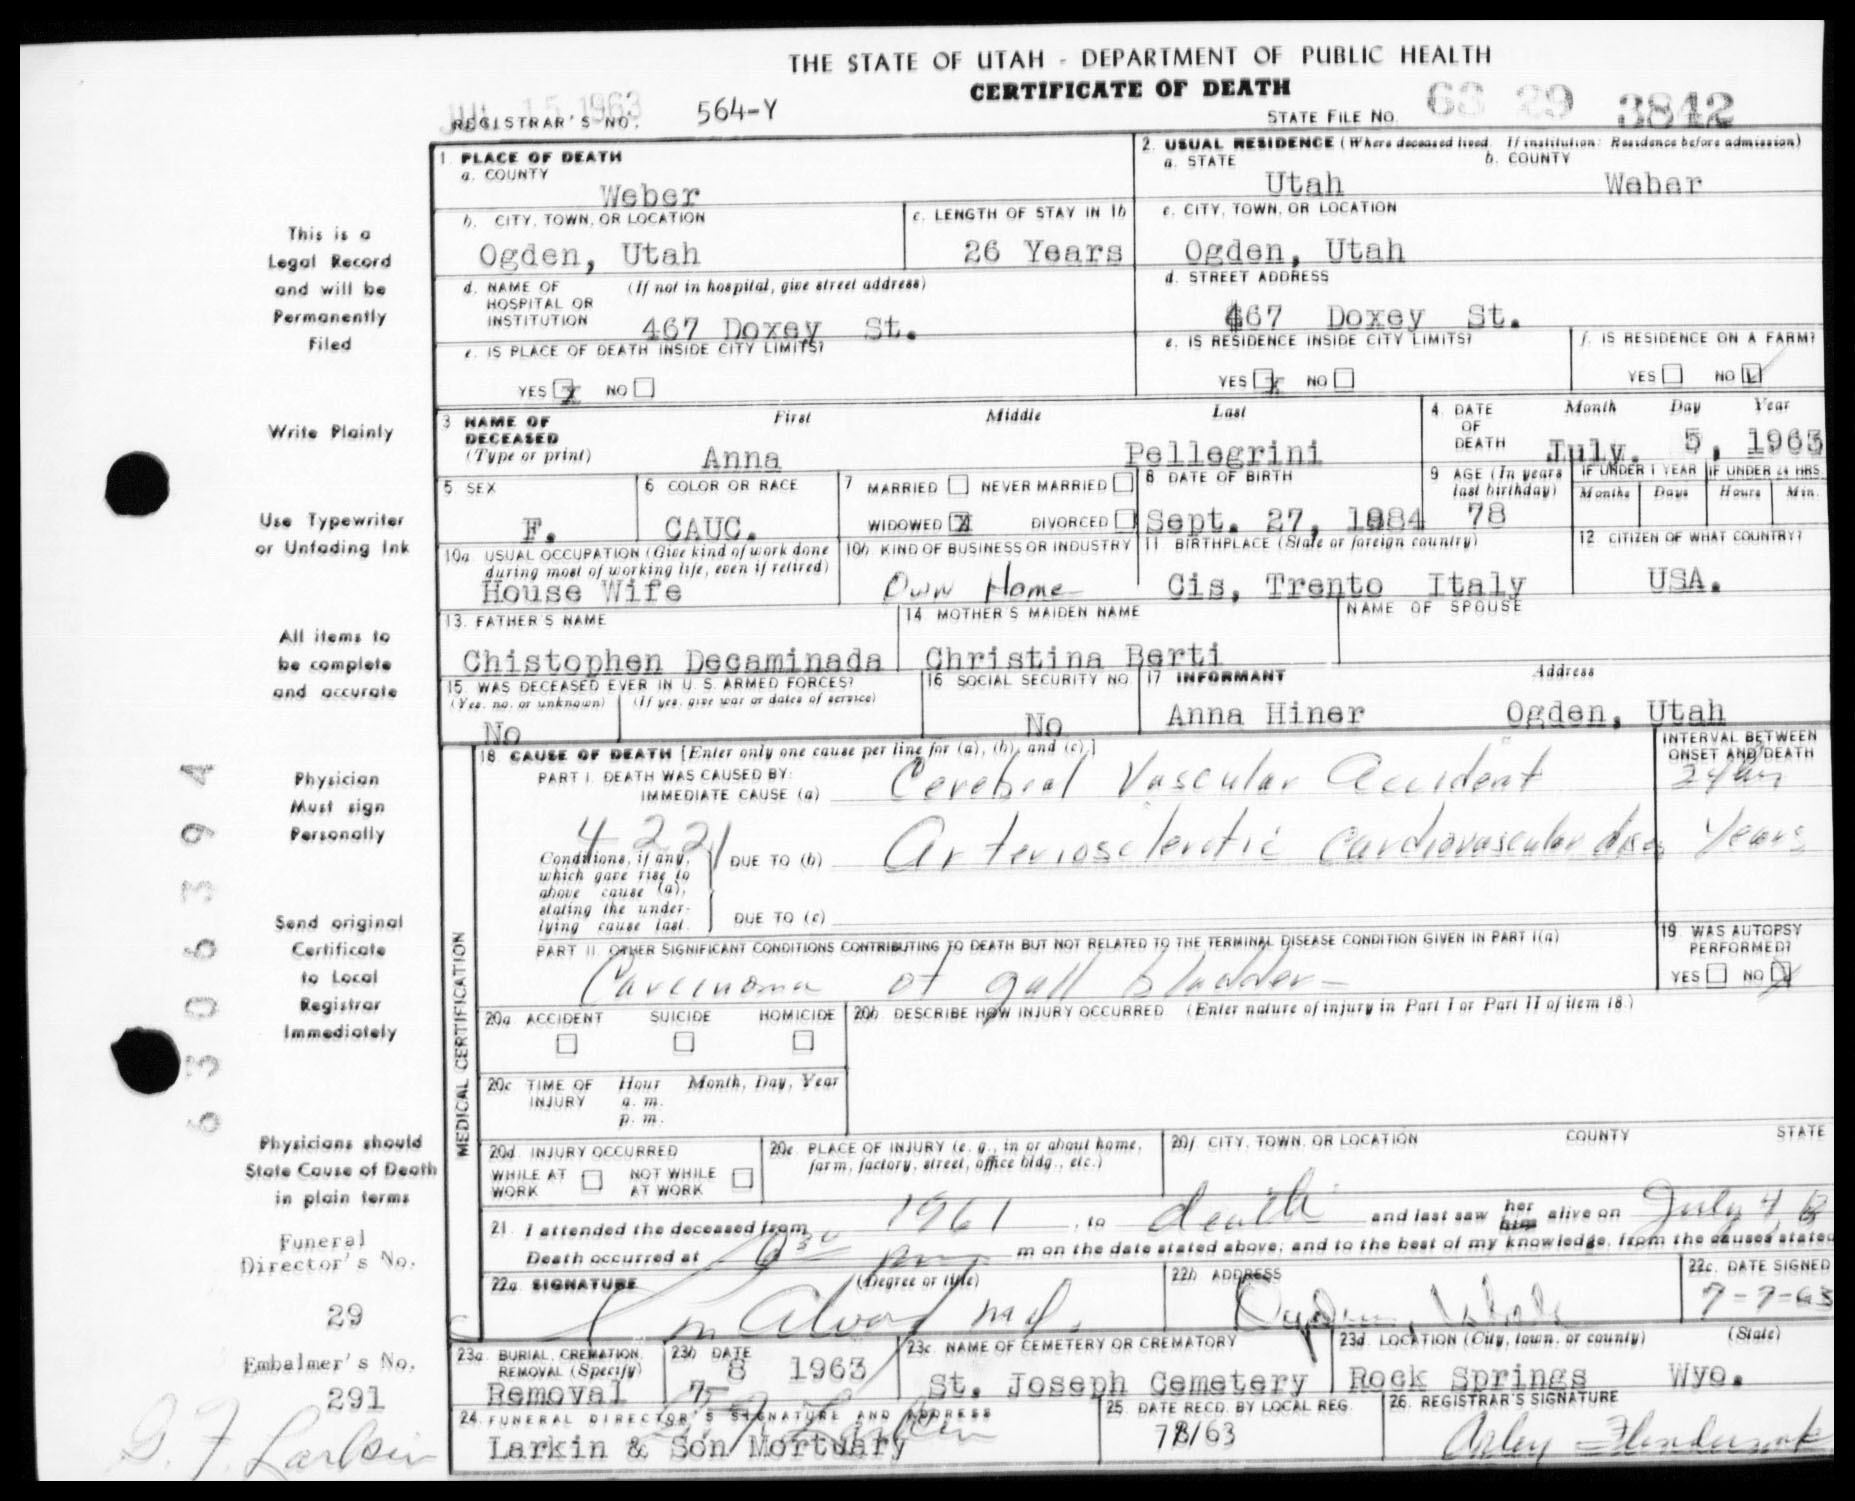 THE STATE OF UTAH - DEPARTMENT OF PUBLIC HEALTH
CERTIFICATE OF DEATH
JUL 15 1963
REGISTRAR'S NO. 564-Y
STATE FILE NO. 63 29 3842
1. PLACE OF DEATH
a. COUNTY
Weber
2. USUAL RESIDENCE (Where deceased lived. If institution: Residence before admission)
a. STATE b. COUNTY
Utah Weber
b. CITY, TOWN, OR LOCATION
Ogden, Utah
c. LENGTH OF STAY IN 1b
26 Years
c. CITY, TOWN, OR LOCATION
Ogden, Utah
d. NAME OF HOSPITAL OR INSTITUTION (If not in hospital, give street address)
467 Doxey St.
d. STREET ADDRESS
467 Doxey St.
e. IS PLACE OF DEATH INSIDE CITY LIMITS?
YES X NO
e. IS RESIDENCE INSIDE CITY LIMITS?
YES X NO
f. IS RESIDENCE ON A FARM?
YES NO
3 NAME OF DECEASED (Type or print)
First Middle Last
Anna Pellegrini
4. DATE OF DEATH
Month Day Year
July. 5, 1963
5. SEX
F.
6 COLOR OR RACE
CAUC.
7 MARRIED NEVER MARRIED
WIDOWED X DIVORCED
8 DATE OF BIRTH
Sept. 27, 1884
9 AGE (In years last birthday)
78
IF UNDER 1 YEAR
Months Days
IF UNDER 24 HRS.
Hours Min.
10a USUAL OCCUPATION (Give kind of work done during most of working life, even if retired)
House Wife
10b. KIND OF BUSINESS OR INDUSTRY
Own Home
11 BIRTHPLACE (State or foreign country)
Cis, Trento Italy
12 CITIZEN OF WHAT COUNTRY?
USA.
13. FATHER'S NAME
Chistophen Decaminada
14 MOTHER'S MAIDEN NAME
Christina Berti
NAME OF SPOUSE
15. WAS DECEASED EVER IN U. S. ARMED FORCES?
(Yes, no, or unknown) (If yes, give war or dates of service)
No
16 SOCIAL SECURITY NO.
No
17 INFORMANT Address
Anna Hiner Ogden, Utah
MEDICAL CERTIFICATION
18 CAUSE OF DEATH [Enter only one cause per line for (a), (b), and (c).]
INTERVAL BETWEEN ONSET AND DEATH
PART I. DEATH WAS CAUSED BY:
IMMEDIATE CAUSE (a) Cerebral Vascular Accident
4221
Conditions, if any, which gave rise to above cause (a), stating the underlying cause last.
DUE TO (b) Arteriosclerotic cardiovascular Years
DUE TO (c)
PART II. OTHER SIGNIFICANT CONDITIONS CONTRIBUTING TO DEATH BUT NOT RELATED TO THE TERMINAL DISEASE CONDITION GIVEN IN PART I(a)
Carcinoma of gall bladder
19. WAS AUTOPSY PERFORMED?
YES NO X
20a ACCIDENT SUICIDE HOMICIDE
20b. DESCRIBE HOW INJURY OCCURRED (Enter nature of injury in Part I or Part II of item 18.)
20c TIME OF INJURY Hour Month, Day, Year
a. m.
p. m.
20d. INJURY OCCURRED
WHILE AT WORK NOT WHILE AT WORK
20e. PLACE OF INJURY (e. g., in or about home, farm, factory, street, office bldg., etc.)
20f CITY, TOWN, OR LOCATION COUNTY STATE
21. I attended the deceased from 1961, to death and last saw her him alive on July 4,
Death occurred at 6 30 pm m on the date stated above; and to the best of my knowledge, from the causes stated
22a. SIGNATURE (Degree or title)
Alvord MD.
22b ADDRESS
Ogden, Utah
22c. DATE SIGNED
7-7-63
23a. BURIAL, CREMATION, REMOVAL (Specify)
Removal
23b DATE
7-8 1963
23c. NAME OF CEMETERY OR CREMATORY
St. Joseph Cemetery
23d. LOCATION (City, town, or county) (State)
Rock Springs Wyo.
24. FUNERAL DIRECTOR'S SIGNATURE AND ADDRESS
G. F. Larkin
Larkin & Son Mortuary
25. DATE RECD. BY LOCAL REG.
7/8/63
26. REGISTRAR'S SIGNATURE
This is a
Legal Record
and will be
Permanently
Filed
Write Plainly
Use Typewriter
or Unfading Ink
All items to
be complete
and accurate
Physician
Must sign
Personally
Send original
Certificate
to Local
Registrar
Immediately
Physicians should
State Cause of Death
in plain terms
Funeral
Director's No.
29
Embalmer's No.
291
G. F. Larkin
6306394